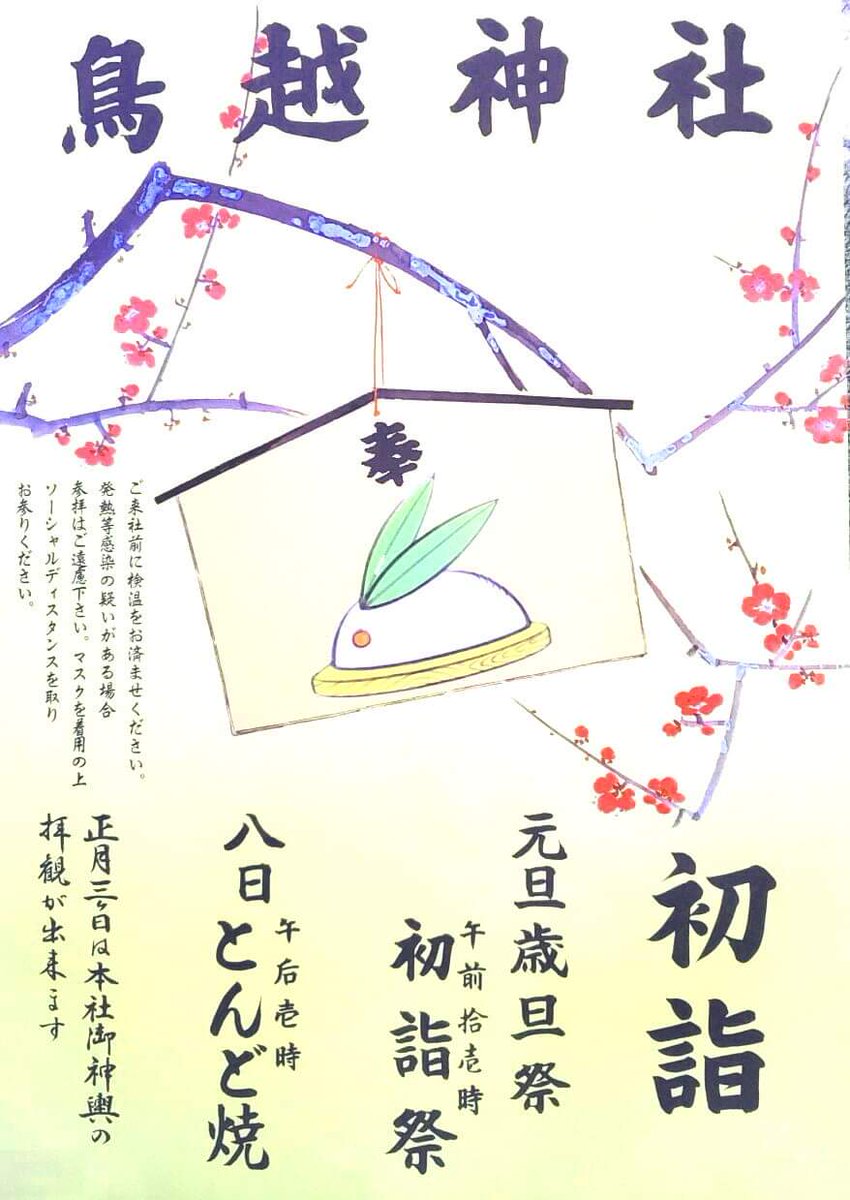 鳥越神社
奉
初詣
元旦歳旦祭
午前拾壱時
初詣祭
午后壱時
八日とんど焼
正月三ヶ日は本社御神輿の
拝観が出来ます
ご来社前に検温をお済ませください。
発熱等感染の疑いがある場合
参拝はご遠慮下さい。マスクを着用の上
ソーシャルディスタンスを取り
お参りください。